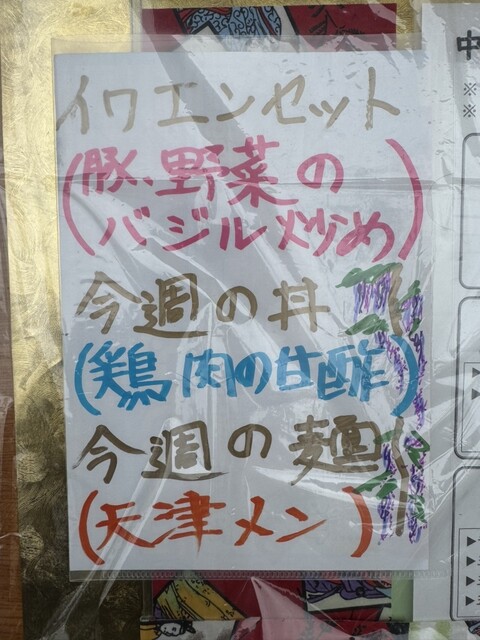 イワエンセット
(豚、野菜の
バジル炒め)
今週の丼
(鶏肉の甘酢)
今週の麺
(天津メン)
中
※
※